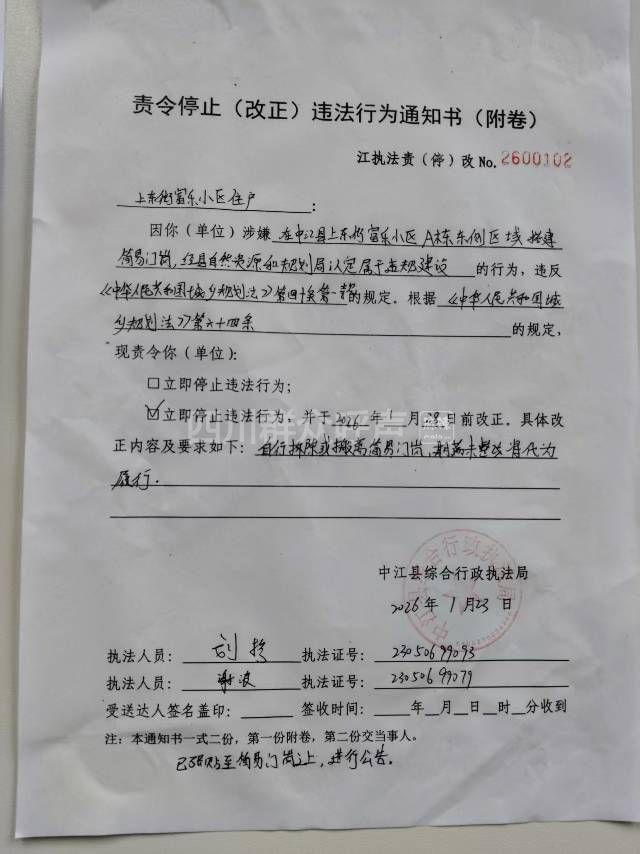 责令停止（改正）违法行为通知书（附卷）
江执法责（停）改 No. 2600102
上东街富乐小区住户：
因你（单位）涉嫌 在中江县上东街富乐小区A栋东侧区域搭建
简易门岗，经县自然资源和规划局认定属于违规建设 的行为，违反
《中华人民共和国城乡规划法》第四十条第一款 的规定。根据 《中华人民共和国城
乡规划法》第六十四条 的规定，
现责令你（单位）：
□立即停止违法行为；
☑立即停止违法行为，并于2026年1月28日前改正。具体改
正内容及要求如下：自行拆除或搬离简易门岗，期满未整改将代为
履行。
中江县综合行政执法局
2026年1月23日
执法人员：刘 执法证号：23050699093
执法人员：谢波 执法证号：23050699079
受送达人签名盖印： 签收时间： 年 月 日 时 分收到
注：本通知书一式二份，第一份附卷，第二份交当事人。
已张贴至简易门岗上，进行公告。
四川群众呼声